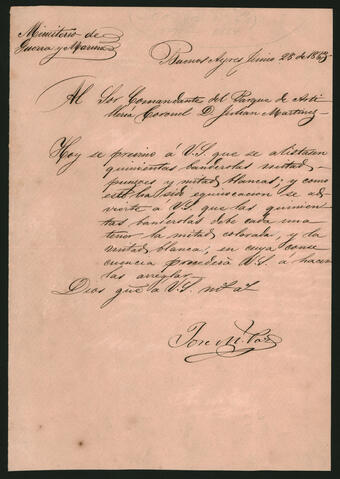 Ministerio de
Guerra y Marina
Buenos Ayres Junio 28 de 18
Al Sor Comandante del Parque de Arti
lleria Coronel D. Julian Martinez
Hoy se previno á V.S. que se alistasen
quinientas banderolas mitad
punzoes y mitad blancas; y como
esto ha sido equivocacion se ad
vierte á V.S. que las quinien
tas banderolas debe cada una
tener la mitad colorada, y la
mitad blanca, en cuya conse
cuencia procederá V.S. á hacer
las arreglar.
Dios gue á V.S. ms. as.
Jose M. Paz